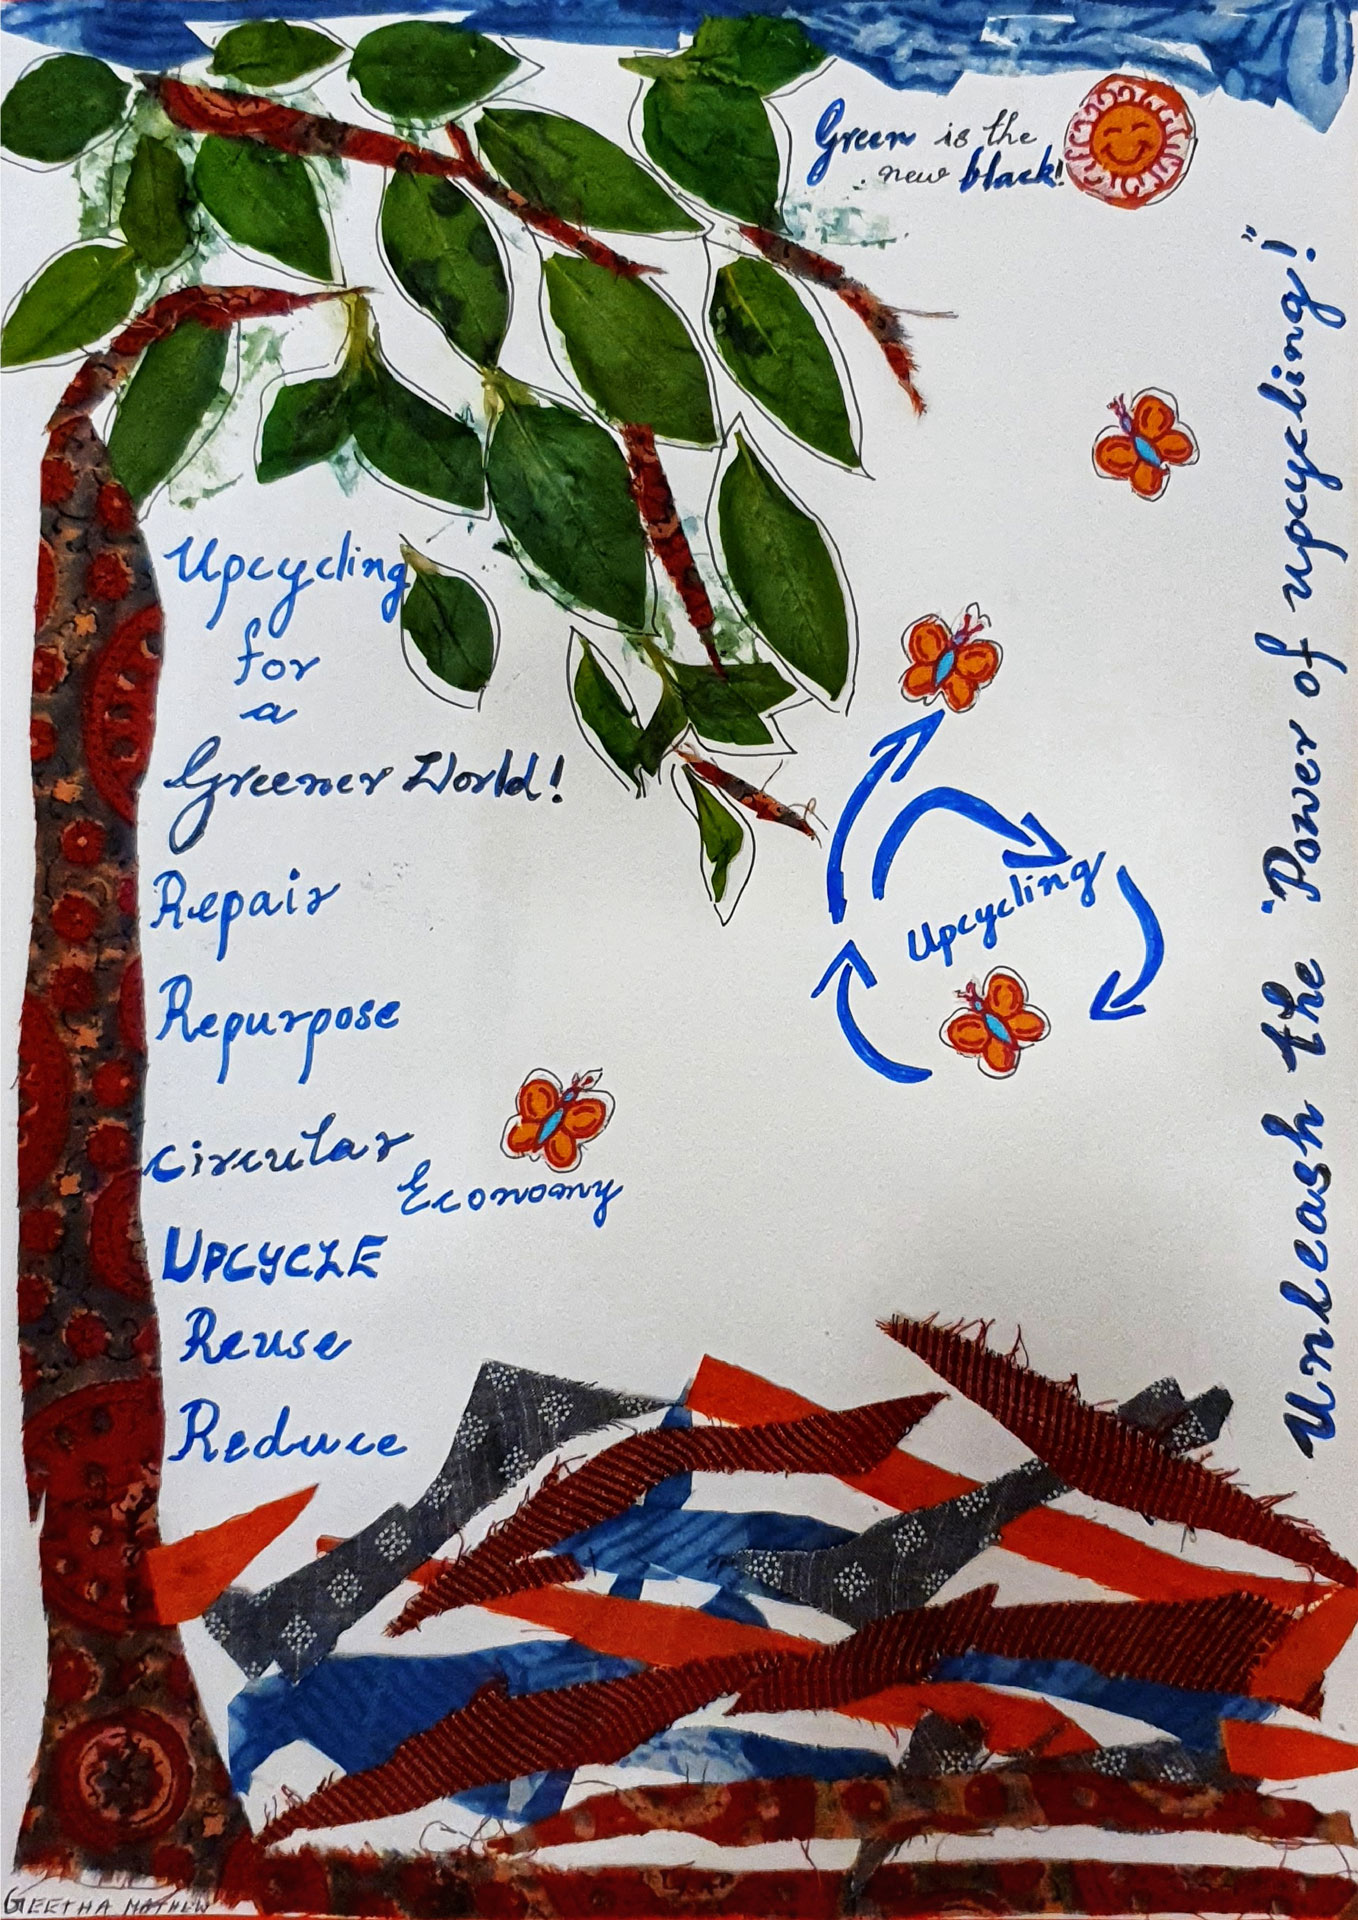 Green is the
new black!
Upcycling
for
a
Greener World!
Repair
Repurpose
Circular
Economy
UPCYCLE
Reuse
Reduce
Upcycling
Unleash the "Power of upcycling"!
GEETHA MATHEW